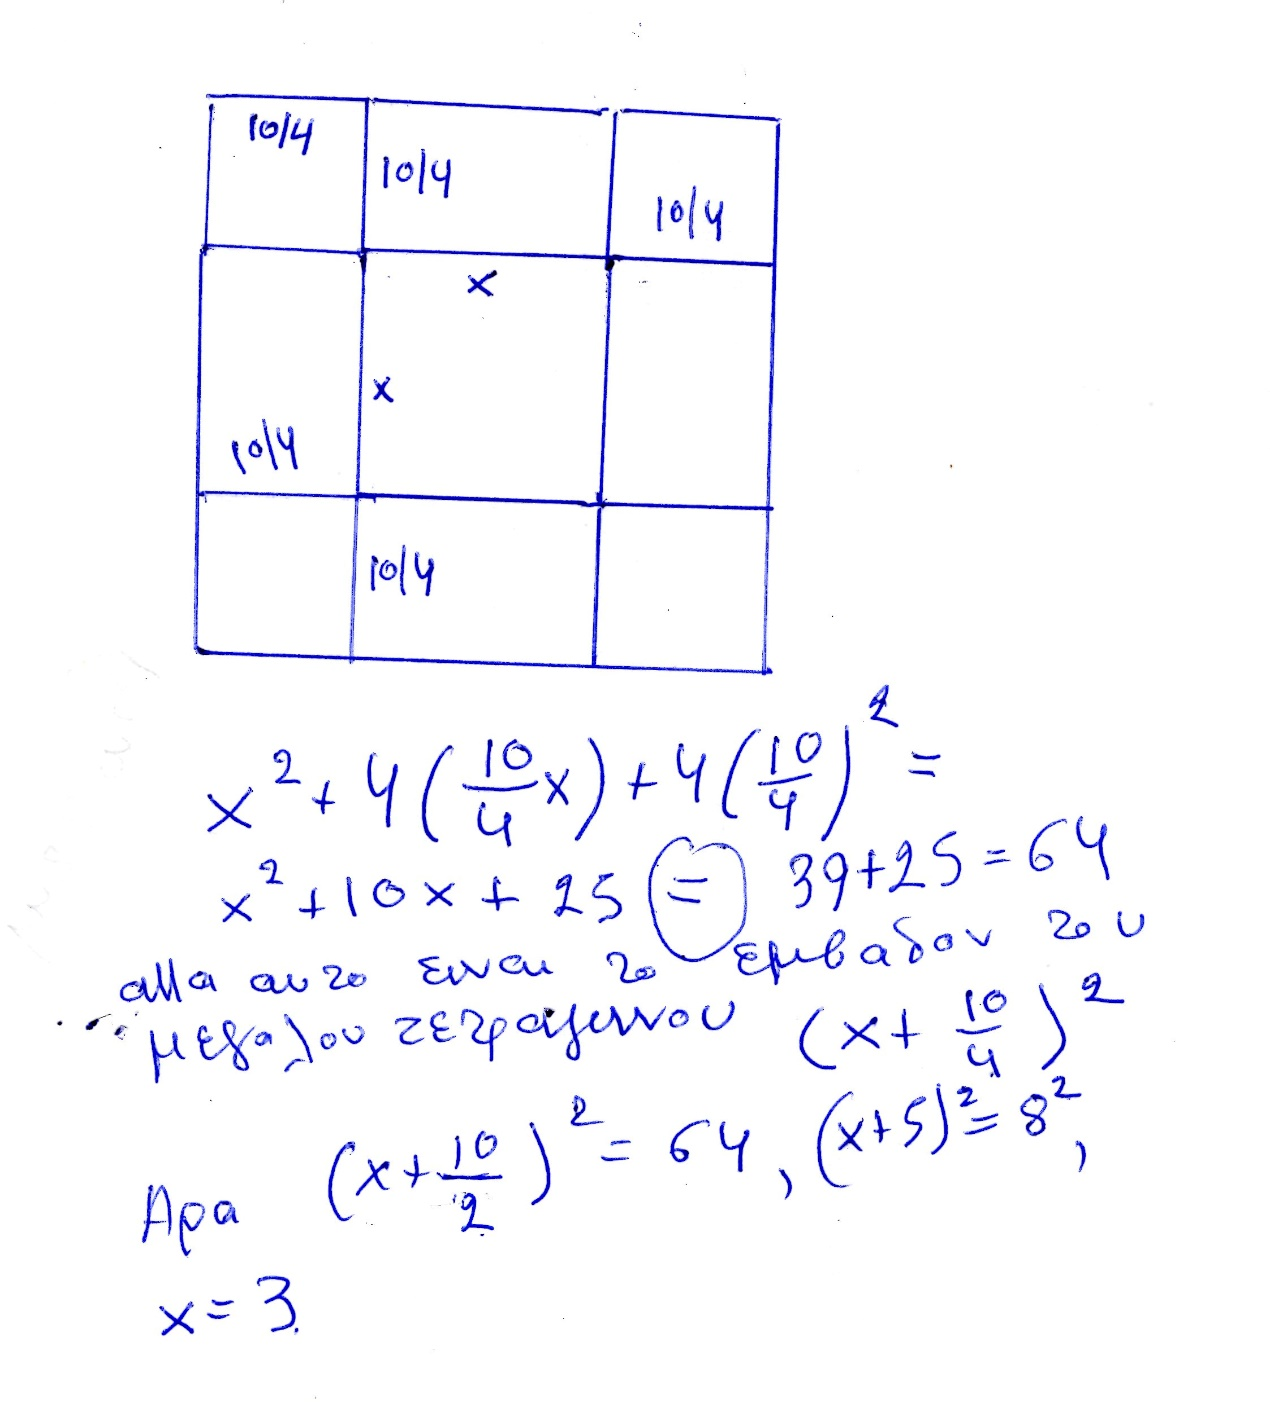 10/4
10/4
10/4
x
x
10/4
10/4
x² + 4(10/4 x) + 4(10/4)² =
x² + 10x + 25 = 39+25 = 64
αλλα αυτο ειναι το εμβαδον του
μεγαλου τετραγωνου (x + 10/4)²
Αρα (x + 10/2)² = 64, (x+5)² = 8²,
x = 3.